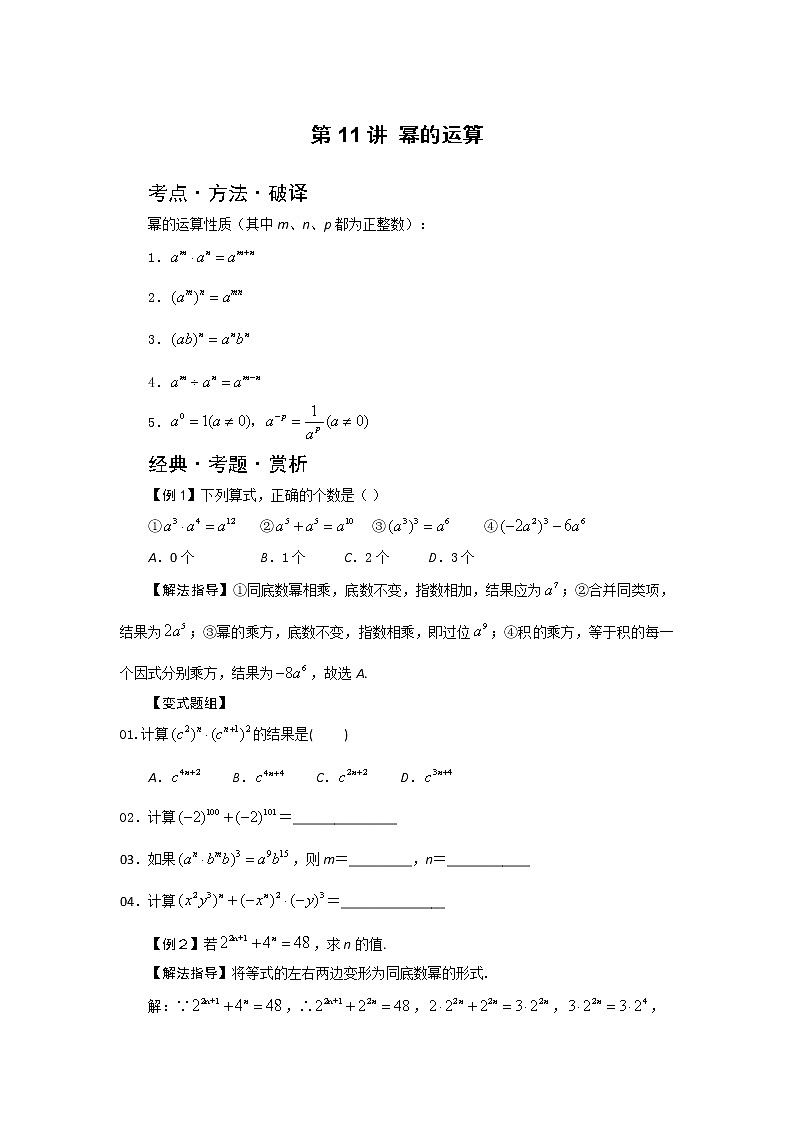 第 11 讲  幂的运算
考点·方法·破译
幂的运算性质（其中 m、n、p 都为正整数）：
1. a^m · a^n = a^{m+n}
2. (a^m)^n = a^{mn}
3. (ab)^n = a^n b^n
4. a^m ÷ a^n = a^{m−n}
5. a^0 = 1(a ≠ 0)，a^{−p} = \frac{1}{a^p}(a ≠ 0)
经典·考题·赏析
【例 1】下列算式，正确的个数是（ ）
①a^3 · a^4 = a^{12}  ②a^5 + a^5 = a^{10}  ③(a^3)^3 = a^6  ④(−2a^2)^3 − 6a^6
A. 0 个  B. 1 个  C. 2 个  D. 3 个
【解法指导】①同底数幂相乘，底数不变，指数相加，结果应为 a^7；②合并同类项，
结果为 2a^5；③幂的乘方，底数不变，指数相乘，即过位 a^9；④积的乘方，等于积的每一
个因式分别乘方，结果为 −8a^6，故选 A.
【变式题组】
01. 计算 (c^2)^n · (c^{n+1})^2 的结果是(  )
A. c^{4n+2}  B. c^{4n+4}  C. c^{2n+2}  D. c^{3n+4}
02. 计算 (−2)^{100} + (−2)^{101} ＝_______________
03. 如果 (a^n · b^m b)^3 = a^9 b^{15}，则 m＝_________，n＝____________
04. 计算 (x^2 y^3)^n + (−x^n)^2 · (−y)^3 ＝_______________
【例２】若 2^{2n+1} + 4^n = 48，求 n 的值.
【解法指导】将等式的左右两边变形为同底数幂的形式.
解：∵ 2^{2n+1} + 4^n = 48，∴ 2^{2n+1} + 2^{2n} = 48，2 · 2^{2n} + 2^{2n} = 3 · 2^{2n}，3 · 2^{2n} = 3 · 2^4，